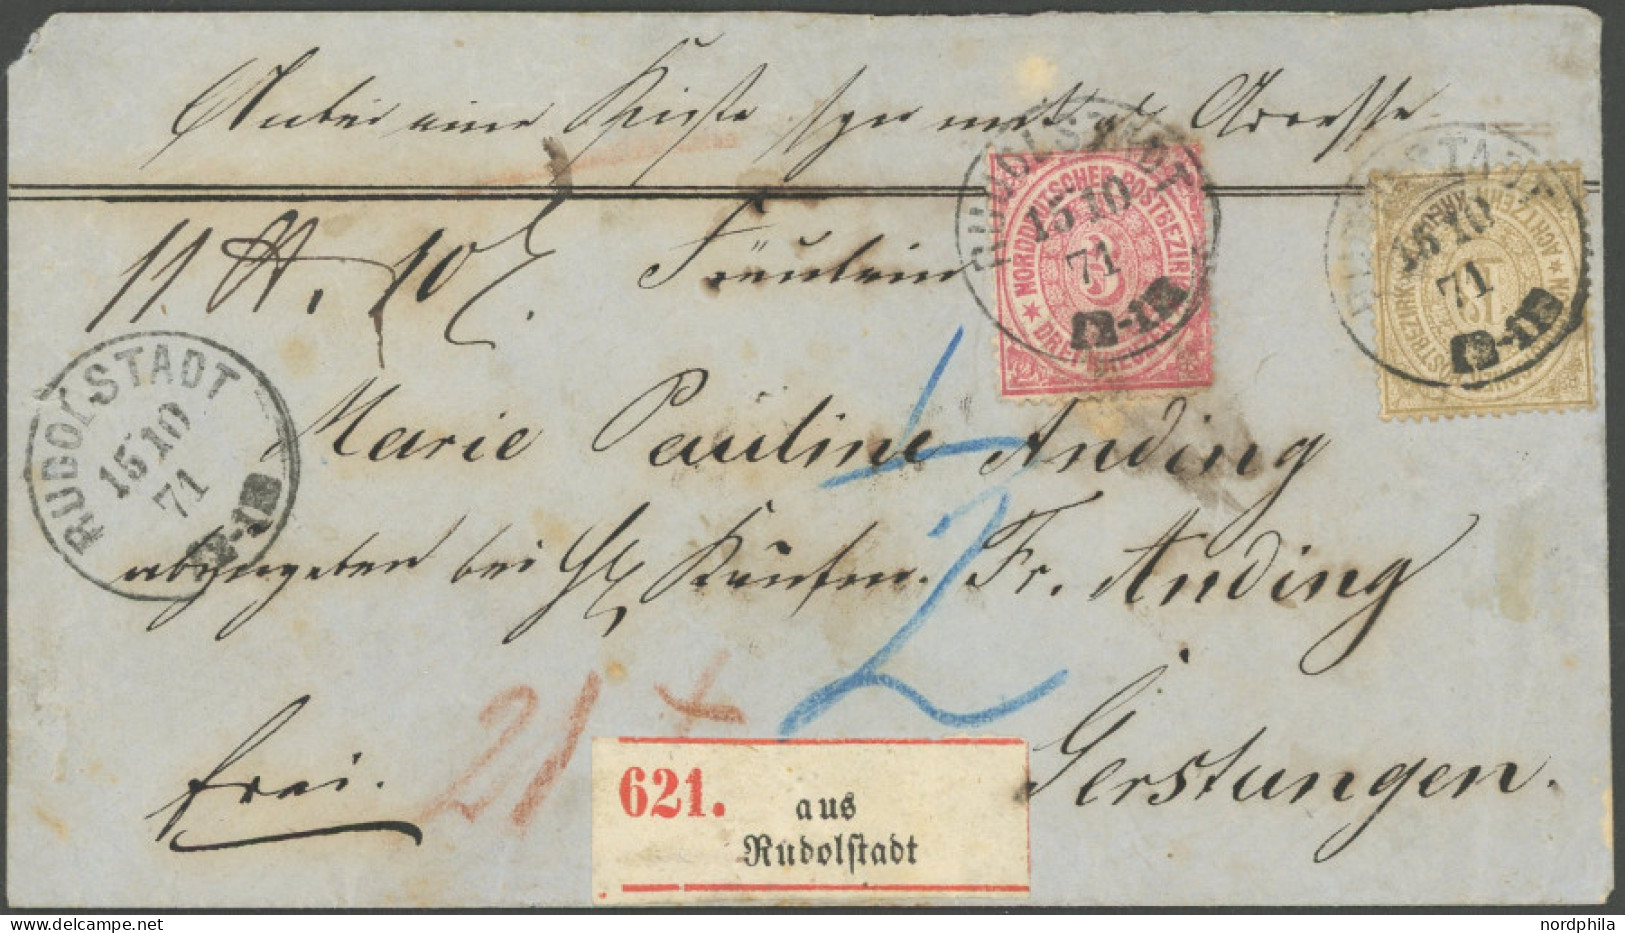 Anbei eine Kiste sgn mit d. Adresse
RUDOLSTADT
15 10
71
12-1 N
NORDDEUTSCHER POSTBEZIRK
3
DREI KREUZER
RUDOLSTADT
15 10
71
12-1 N
NORDD. POSTBEZIRK
18
ACHTZEHN KREUZER
11 ℔. 10
Fräulein
RUDOLSTADT
15 10
71
12-1 N
Marie Pauline Anding
abzugeben bei Kaufm. Fr. Anding
2
21
Gerstungen.
frei.
621.
aus
Rudolstadt
nordphila